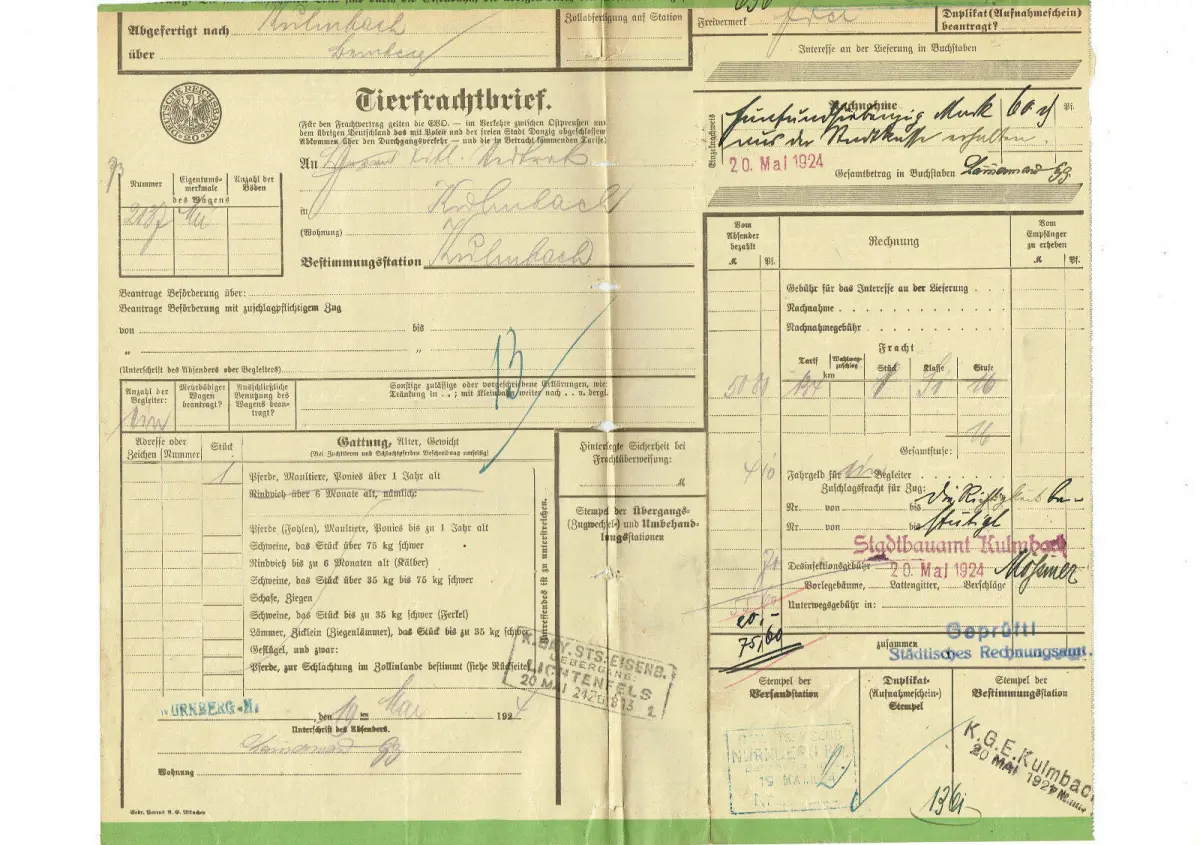 Abgefertigt nach Kulmbach
über Bamberg
Zollabfertigung auf Station
Freivermerk
Duplikat (Aufnahmeschein) beantragt?
Interesse an der Lieferung in Buchstaben
DEUTSCHE REICHSBAHN
20
Tierfrachtbrief.
(Für den Frachtvertrag gelten die EVO. — im Verkehre zwischen Ostpreußen und
dem übrigen Deutschland das mit Polen und der freien Stadt Danzig abgeschlossene
Abkommen über den Durchgangsverkehr — und die in Betracht kommenden Tarife.)
An Herrn
in Kulmbach
(Wohnung)
Bestimmungsstation Kulmbach
Nummer
Eigentums-merkmale
Anzahl der Böden
des Wagens
Einzelnachweis
Nachnahme
Fünfundsiebenzig Mark 60 Pf.
aus der Stadtkasse erhalten.
20. Mai 1924
Gesamtbetrag in Buchstaben
Beantrage Beförderung über:
Beantrage Beförderung mit zuschlagpflichtigem Zug
von bis
" "
(Unterschrift des Absenders oder Begleiters)
13
Anzahl der Begleiter:
Mehrbödiger Wagen beantragt?
Ausschließliche Benutzung des Wagens bean-tragt?
Sonstige zulässige oder vorgeschriebene Erklärungen, wie:
Tränkung in . . ; mit Kleinbahn weiter nach . . u. dergl.
Adresse oder Zeichen
Nummer
Stück
Gattung, Alter, Gewicht
(Bei Zuchttieren und Schlachtpferden Beschreibung umseitig)
1 Pferde, Maultiere, Ponies über 1 Jahr alt
Rindvieh über 6 Monate alt, nämlich:
Pferde (Fohlen), Maultiere, Ponies bis zu 1 Jahr alt
Schweine, das Stück über 75 kg schwer
Rindvieh bis zu 6 Monaten alt (Kälber)
Schweine, das Stück über 35 kg bis 75 kg schwer
Schafe, Ziegen
Schweine, das Stück bis zu 35 kg schwer (Ferkel)
Lämmer, Zicklein (Ziegenlämmer), das Stück bis zu 35 kg schwer
Geflügel, und zwar:
Pferde, zur Schlachtung im Zollinlande bestimmt (siehe Rückseite)
Zutreffendes ist zu unterstreichen.
Hinterlegte Sicherheit bei Frachtüberweisung:
M
Stempel der Übergangs-
(Zugwechsel-) und Umbehand-
lungsstationen
K.BAY.STS.EISENB.
UEBERGANG:
LICHTENFELS
20 MAI 24
NÜRNBERG
den 19 ten Mai 1924
Unterschrift des Absenders.
Wohnung
Vom Absender bezahlt
M Pf.
Rechnung
Vom Empfänger zu erheben
M Pf.
Gebühr für das Interesse an der Lieferung
Nachnahme
Nachnahmegebühr
Fracht
Tarif km
Stück
Klasse
Stufe
16
16
Gesamtstufe:
Fahrgeld für Begleiter
Zuschlagsfracht für Zug:
Nr. von bis
Nr. von bis
Die Richtigkeit be-
stätigt
Stadtbauamt Kulmbach
20. Mai 1924
Desinfektionsgebühr
Vorlegebäume, Lattengitter, Verschläge
Unterwegsgebühr in:
20,-
75,60
zusammen
Geprüft!
Städtisches Rechnungsamt.
Stempel der Versandstation
Duplikat-
(Aufnahmeschein-)
Stempel
Stempel der Bestimmungsstation
NÜRNBERG
19 MAI 24
K.G.E. Kulmbach
20 MAI 1924